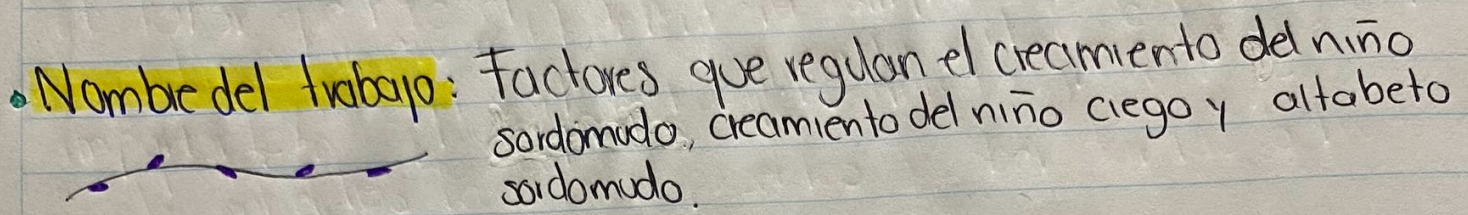 • Nombre del trabajo: Factores que regulan el creamiento del niño
sordomudo, creamiento del niño ciego y alfabeto
sordomudo.